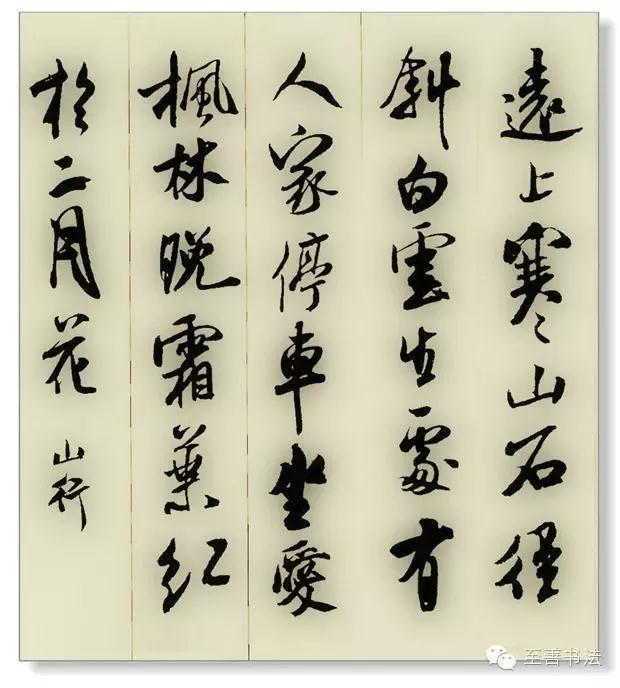 遠上寒山石徑
斜白雲生處有
人家停車坐愛
楓林晚霜葉紅
於二月花 山行
至善书法